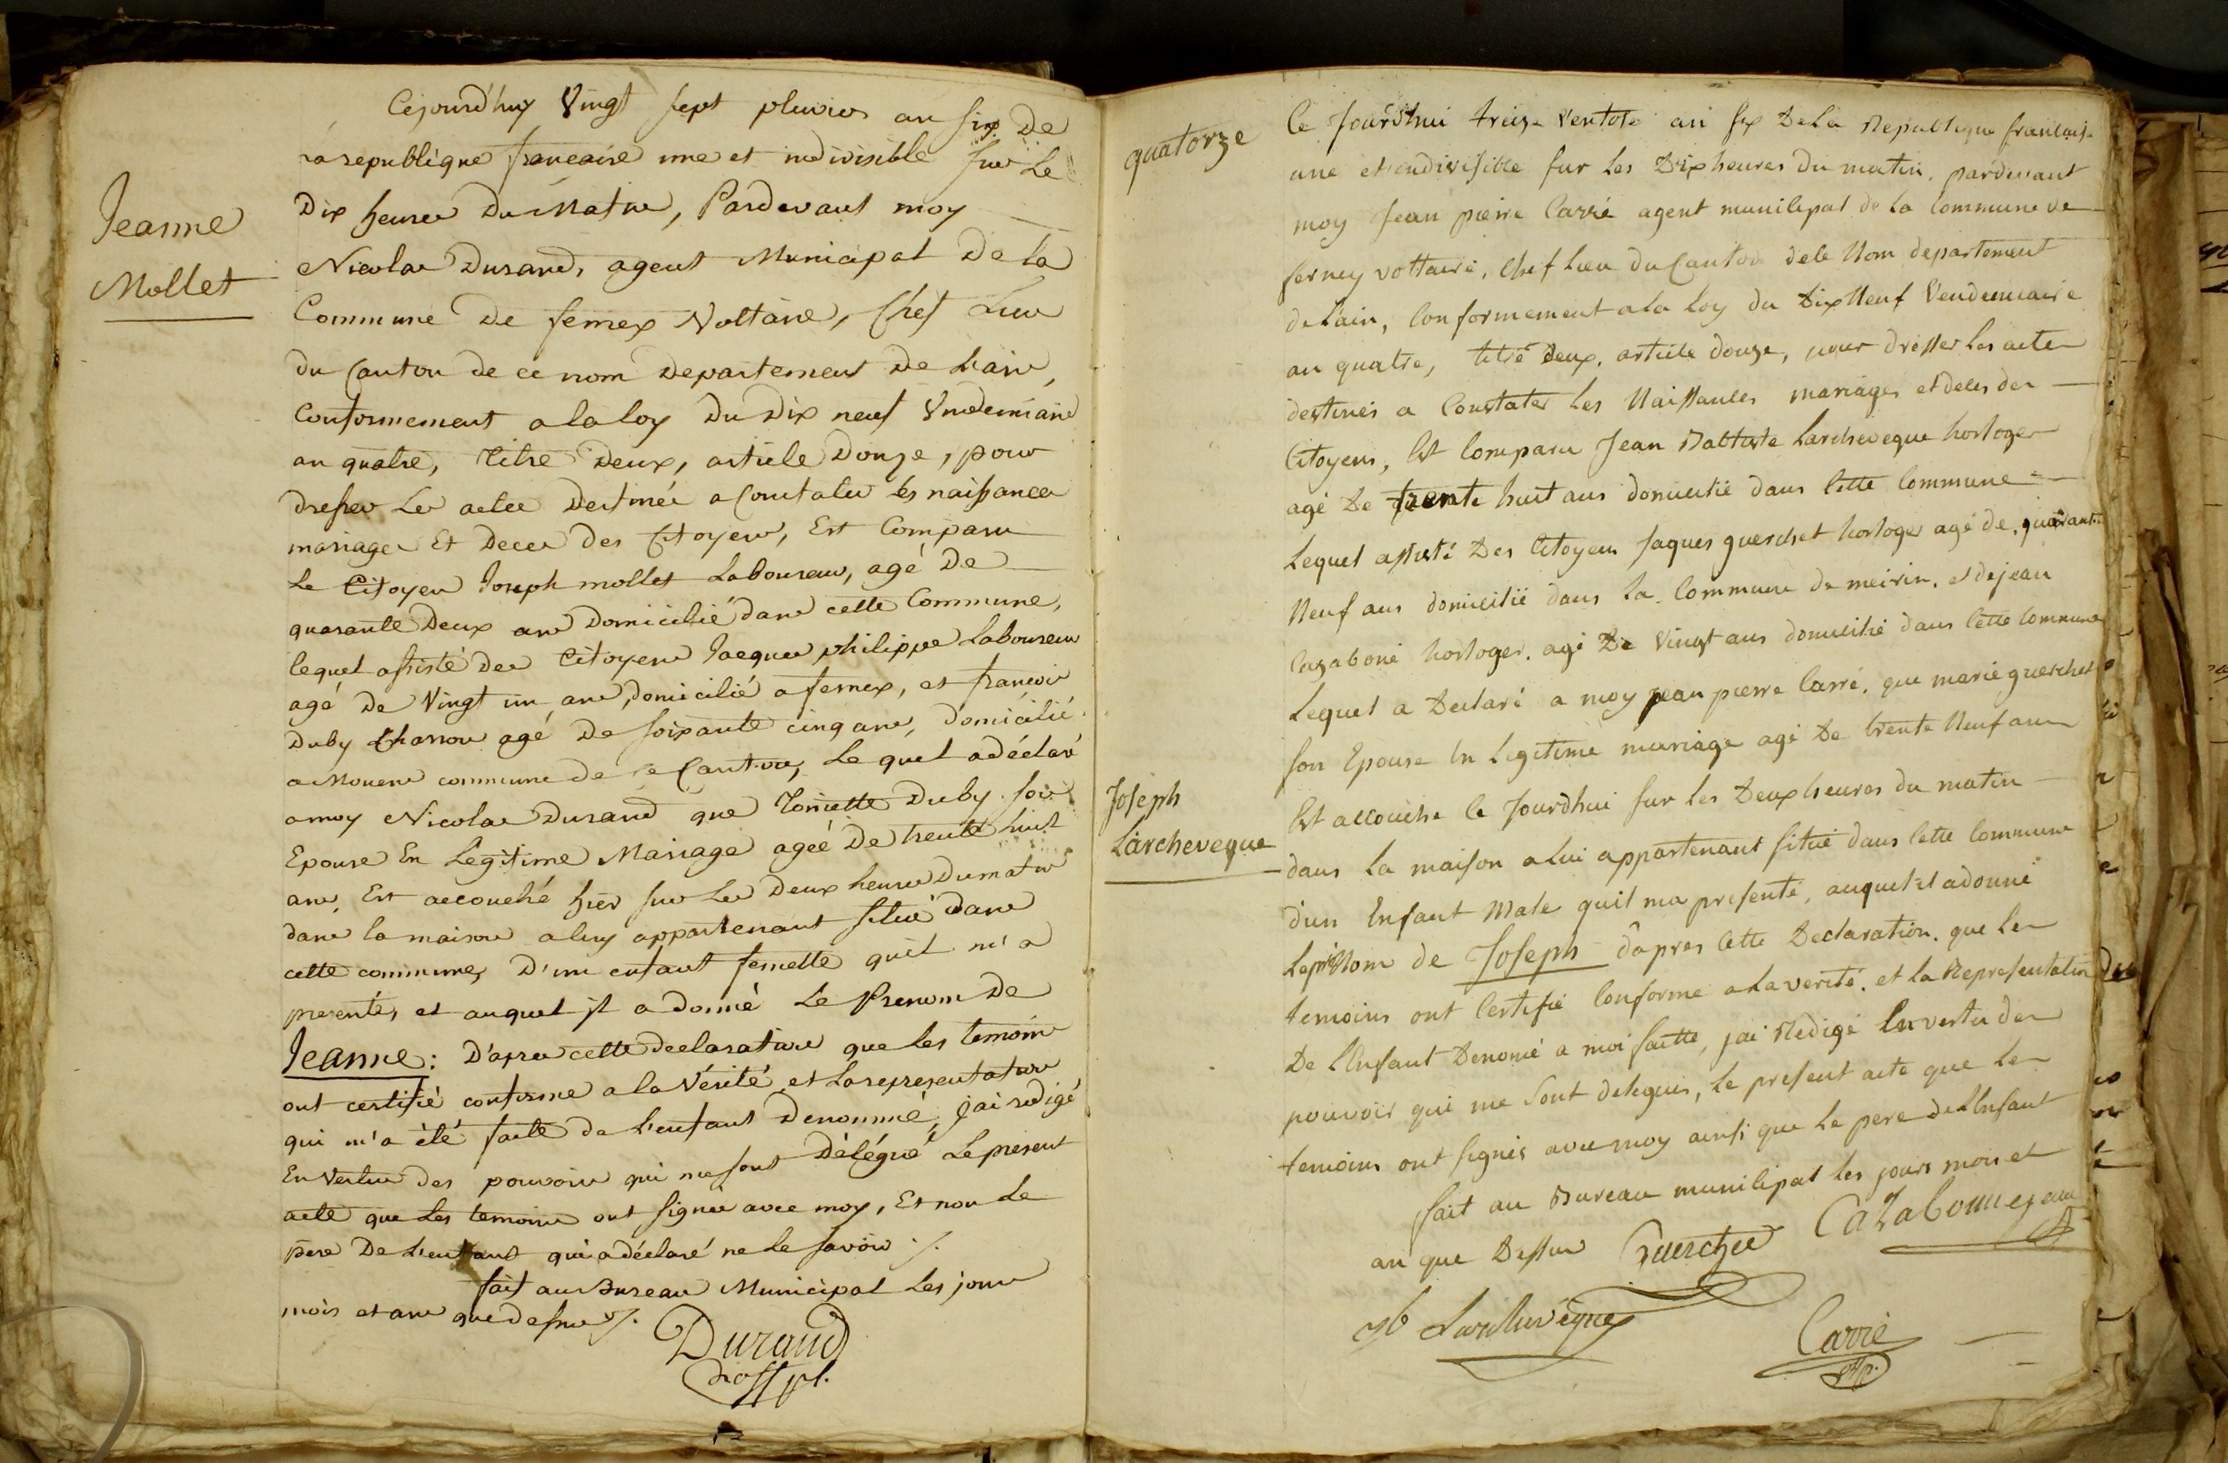 Cejourd'huy Vingt sept pluvios an six De
la republique francaise une et indivisible sur Le
Dix heures Du Matin, Pardevant moy
Nicolas Durand, agent Municipal De la
Commune De fernex Voltaire, Chef Lieu
du Canton de ce nom Departement De L'ain,
Conformement a la loy Du Dix neuf Vendemiaire
an quatre, Titre Deux, article Douze, pour
Dresser Les actes Destinés a Constater les naissances
mariages Et Deces Des Citoyens, Est Comparu
Le Citoyen Joseph mollet Laboureur, agé De
quarante Deux ans Domicilié dans cette Commune,
lequel assisté des Citoyens Jacques philippe Laboureur
agé De Vingt un ans, domicilié a fernex, et francois
Duby Charron agé De soixante cinq ans, domicilié
a Mouens commune de ce Canton, Le quel a déclaré
a moy Nicolas Durand que Toniette Duby son
Epouse En Legitime Mariage agéé De trente huit
ans, Est accouché hier sur Les Deux heures Du matin
dans la maison a luy appartenant situé dans
cette commune, D'un enfant femelle qu'il m'a
presenté, et auquel il a donné Le Prenom De
Jeanne: D'apres cette declaration que les temoins
ont certifié conforme a la Vérité et La representation
qui m'a été faite de L'enfant Denommé, j'ai redigé
En Vertu des pouvoirs qui me sont Délégué Le present
acte que Les temoins ont signés avec moy, Et non Le
pere De L'enfant qui a déclaré ne Le savoir ./.
fait au Bureau Municipal Les jour
mois et an que dessus ./.
Durand
Jeanne
Mollet
quatorze
Ce Jourdhui treize Ventose an six De La Republique francaise
une et indivisible sur les Dix heures du matin, pardevant
moy Jean pierre Carré agent municipal de la Commune de
ferney voltaire, Chef Lieu Du Canton dele Nom departement
de Lain, Conformement a la Loy du Dix Neuf Vendemiaire
an quatre, titre Deux, article douze, pour dresser les actes
destinés a Constater les Naissances mariages et deces des
Citoyens, Est Comparu Jean Battiste Larcheveque horloger
agé De trente huit ans domicilié dans cette Commune
Lequel assisté Des Citoyens Jaques querchet horloger agé de quarante
Neuf ans domicilié dans la Commune de meirin, et de jean
Cazaboné horloger, agé De Vingt ans domicilié dans cette Commune
Lequel a Declaré a moy jean pierre Carré, que marie querchet
son Epouse En Legitime mariage agé De trente Neuf ans
Est accouché Ce Jourdhui sur les Deux heures du matin
dans La maison a Lui appartenant située dans cette Commune
d'un Enfant Male quil ma presenté, auquel il a donné
Le preNom de Joseph d'apres Cette Declaration, que Les
temoins ont Certifié Conforme a la verité, et la Representation
De LEnfant Denomé a moi faitte, jai Redigé En vertu des
pouvoirs qui me Sont delegués, Le present acte que Les
temoins ont signés avec moy ainsi que Le pere de LEnfant
fait au Bureau municipal les jours mois et
an que Dessus Guerchet Cazabonne jean
jb Larcheveque
Carré
Joseph
Larcheveque